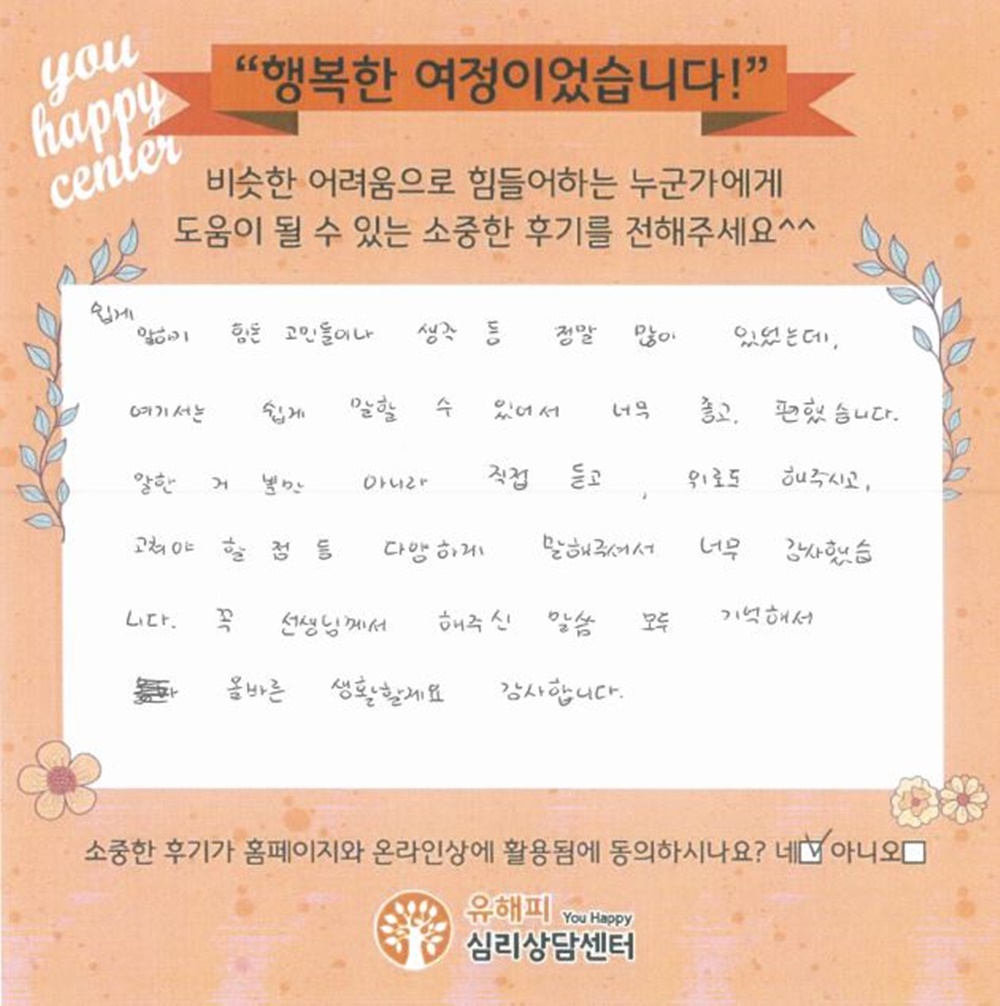 you
happy
center
“행복한 여정이었습니다!”
비슷한 어려움으로 힘들어하는 누군가에게
도움이 될 수 있는 소중한 후기를 전해주세요^^
쉽게
말하기 힘든 고민들이나 생각 등 정말 많이 있었는데,
여기서는 쉽게 말할 수 있어서 너무 좋고, 편했습니다.
말한 거 뿐만 아니라 직접 듣고, 위로도 해주시고,
고쳐야 할 점 등 다양하게 말해주셔서 너무 감사했습
니다. 꼭 선생님께서 해주신 말씀 모두 기억해서
올바른 생활할게요 감사합니다.
소중한 후기가 홈페이지와 온라인상에 활용됨에 동의하시나요? 네☑ 아니오□
유해피 You Happy
심리상담센터